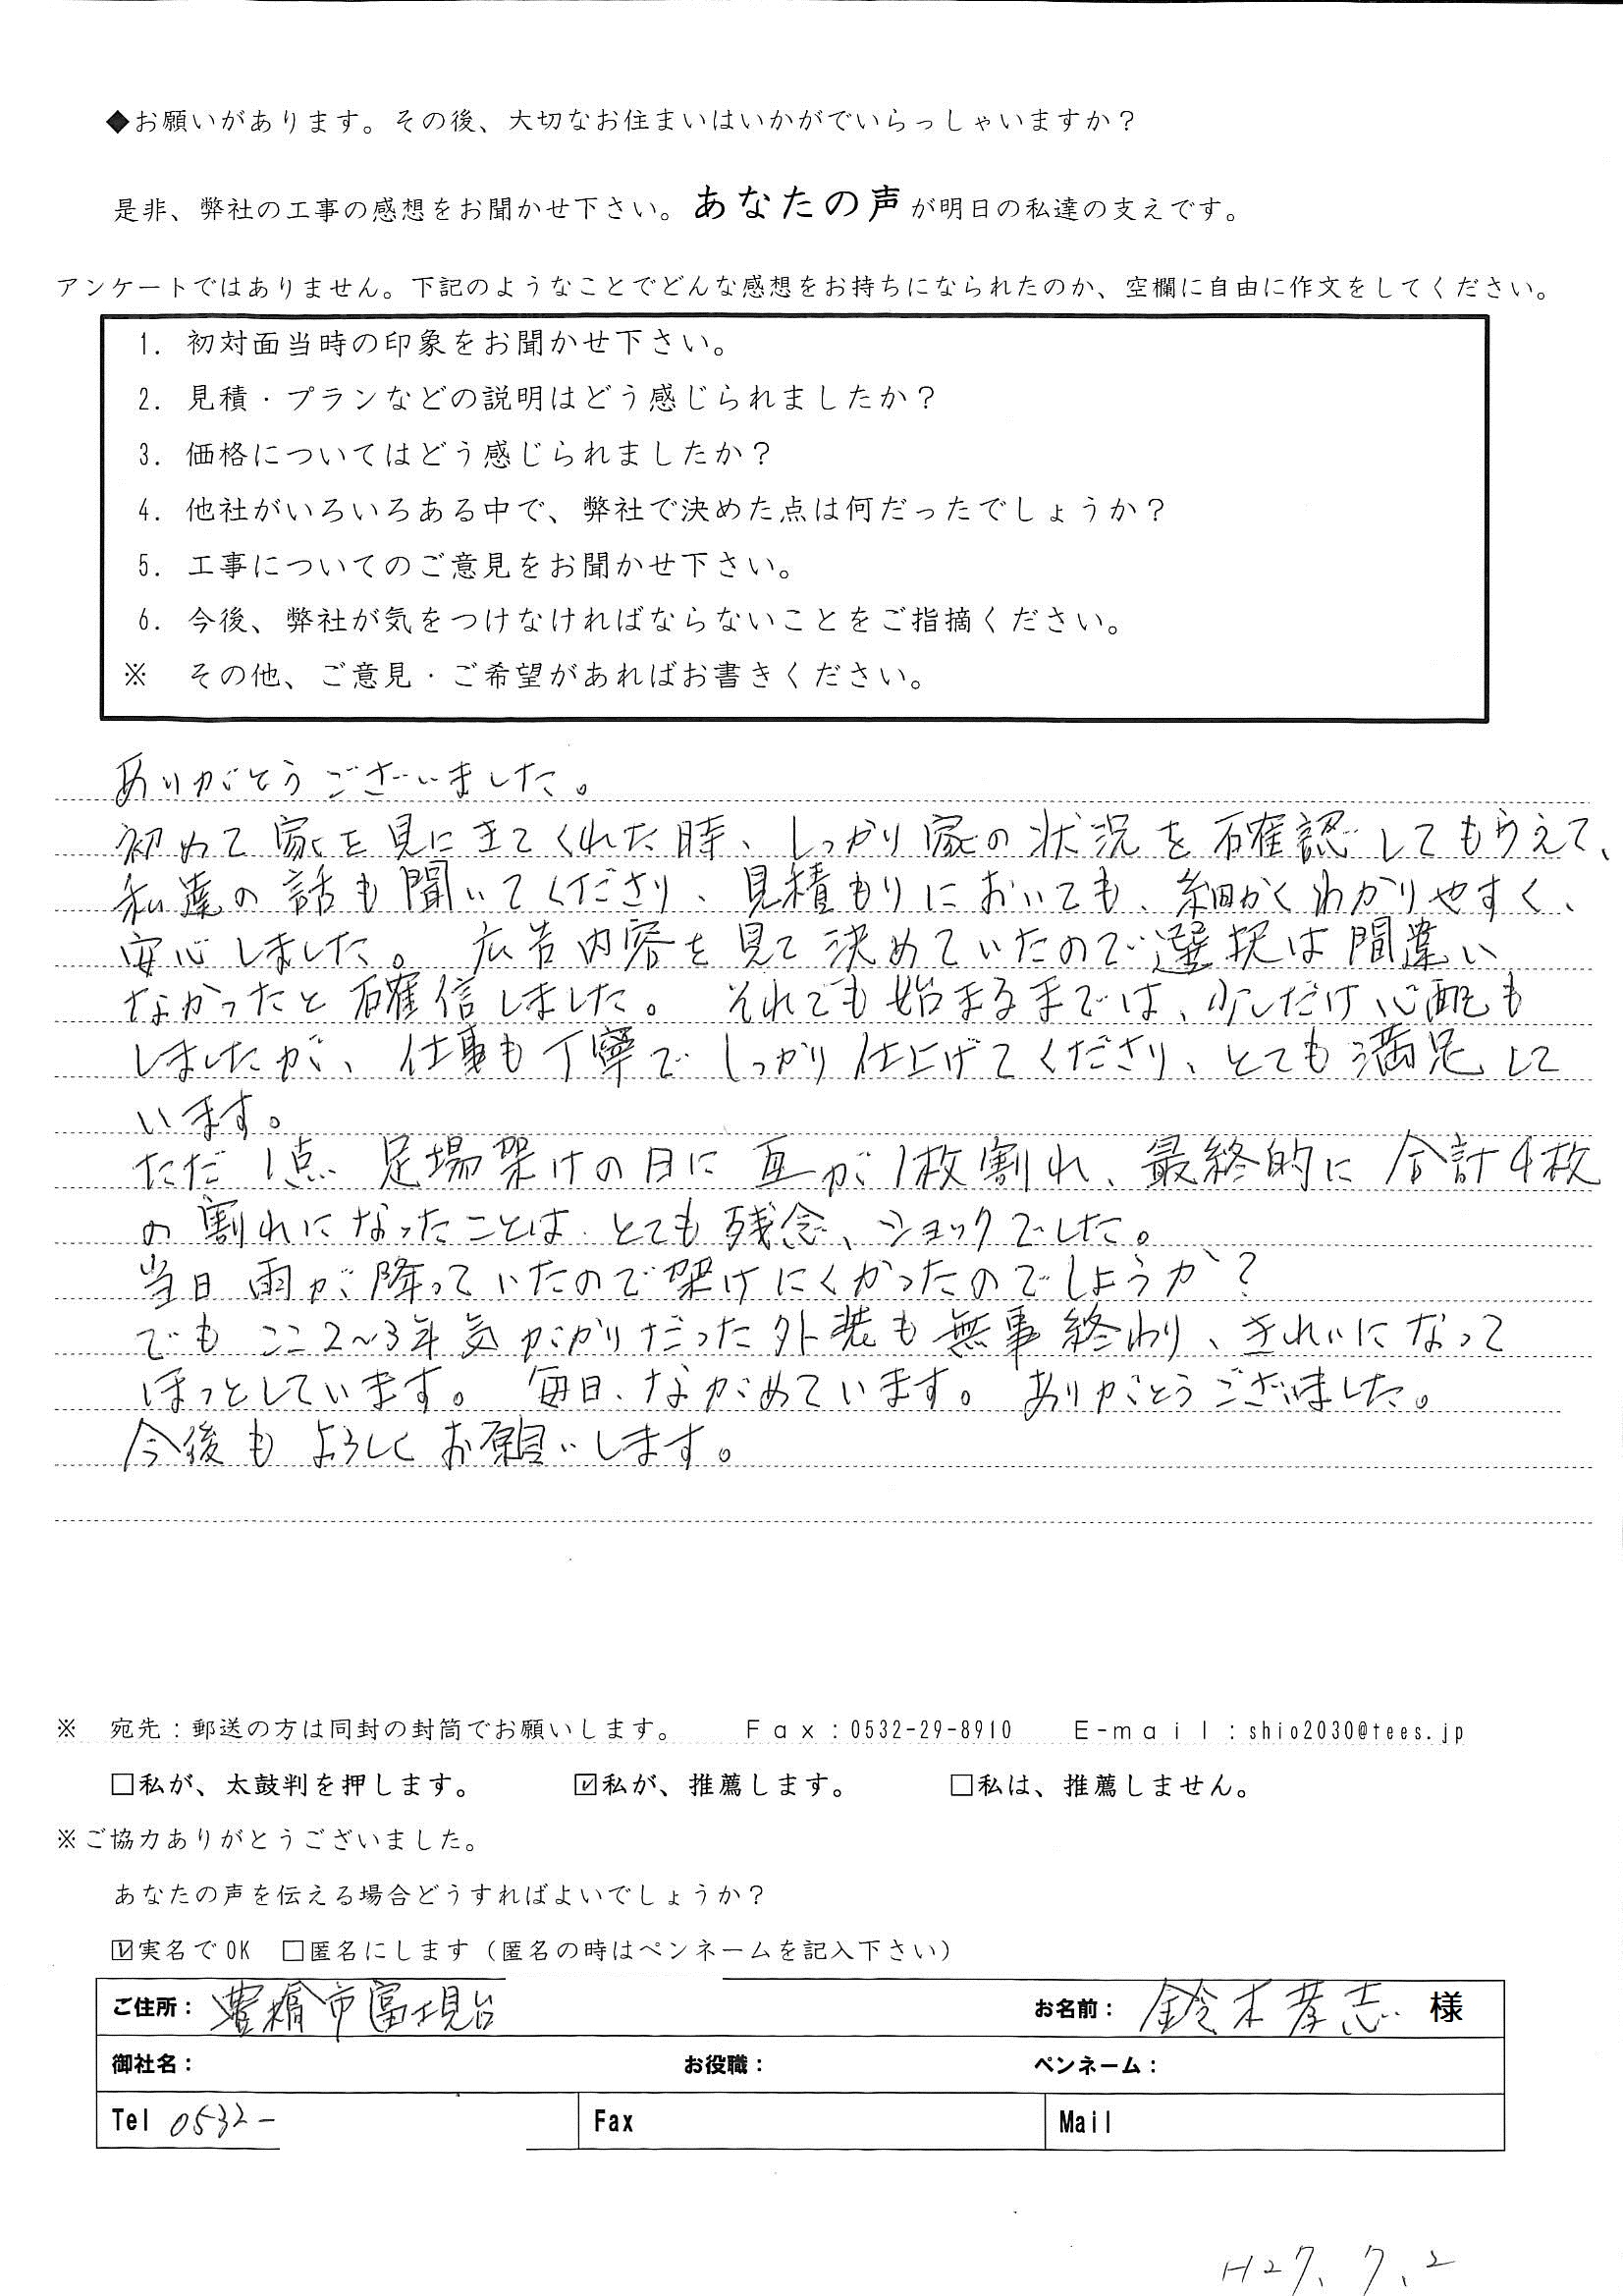 ◆お願いがあります。その後、大切なお住まいはいかがでいらっしゃいますか？
是非、弊社の工事の感想をお聞かせ下さい。あなたの声が明日の私達の支えです。
アンケートではありません。下記のようなことでどんな感想をお持ちになられたのか、空欄に自由に作文をしてください。
1. 初対面当時の印象をお聞かせ下さい。
2. 見積・プランなどの説明はどう感じられましたか？
3. 価格についてはどう感じられましたか？
4. 他社がいろいろある中で、弊社で決めた点は何だったでしょうか？
5. 工事についてのご意見をお聞かせ下さい。
6. 今後、弊社が気をつけなければならないことをご指摘ください。
※ その他、ご意見・ご希望があればお書きください。
ありがとうございました。
初めて家を見にきてくれた時、しっかり家の状況を確認してもらえて、
私達の話も聞いてくださり、見積もりにおいても、細かくわかりやすく、
安心しました。 広告内容を見て決めていたので選択は間違い
なかったと確信しました。 それでも始まるまでは、少しだけ心配も
しましたが、仕事も丁寧でしっかり仕上げてくださり、とても満足して
います。
ただ1点、足場架けの日に瓦が1枚割れ、最終的に合計4枚
の割れになったことは、とても残念、ショックでした。
当日雨が降っていたので架けにくかったのでしょうか？
でもここ2〜3年気がかりだった外装も無事終わり、きれいになって
ほっとしています。 毎日、ながめています。 ありがとうございました。
今後もよろしくお願いします。
※ 宛先：郵送の方は同封の封筒でお願いします。 Fax：0532-29-8910 E-mail：shio2030@tees.jp
□私が、太鼓判を押します。 ☑私が、推薦します。 □私は、推薦しません。
※ご協力ありがとうございました。
あなたの声を伝える場合どうすればよいでしょうか？
☑実名でOK □匿名にします（匿名の時はペンネームを記入下さい）
ご住所： 豊橋市富士見台 お名前： 鈴木孝志 様
御社名： お役職： ペンネーム：
Tel 0532- Fax Mail
H27. 7. 2